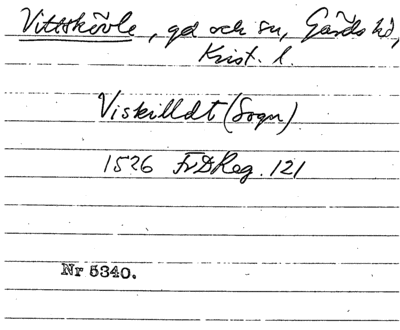 Vittskövle, gd och sn, Gärds hd,
Krist. l.
Viskilldt (Sogn)
1526 FrDReg. 121
Nr 5340.